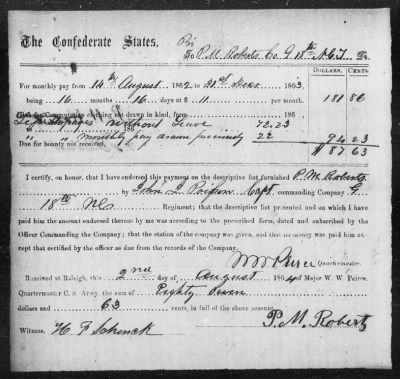 The Confederate States,
To P. M. Roberts Co. G 18th N.C.T. Dr.
DOLLARS, CENTS
For monthly pay from 14th August 1862 to 31st Decr 1863,
being 16 months 16 days at $ 11 per month, 181 86
For Commutation clothing not drawn in kind, from
To Stoppages without Leave 72.23
to monthly pay drawn previously 22 94 23
Due for bounty not received, $ 87 63
I certify, on honor, that I have endorsed this payment on the descriptive list furnished P. M. Roberts
by John J. Poisson Capt. commanding Company G
18th NC Regiment; that the descriptive list was presented and on which I have
paid him the amount endorsed thereon by me according to the prescribed form, dated and subscribed by the
Officer Commanding the Company; that the station of the company was given, and that no money was paid him ex
cept that certified by the officer as due from the records of the Company.
W W Peirce Quartermaster.
Received at Raleigh, this 2nd day of August 1864 of Major W. W. Peirce,
Quartermaster C. S. Army, the sum of Eighty Seven
dollars and 63 cents, in full of the above account.
P. M. Roberts
Witness, H. F. Schenck